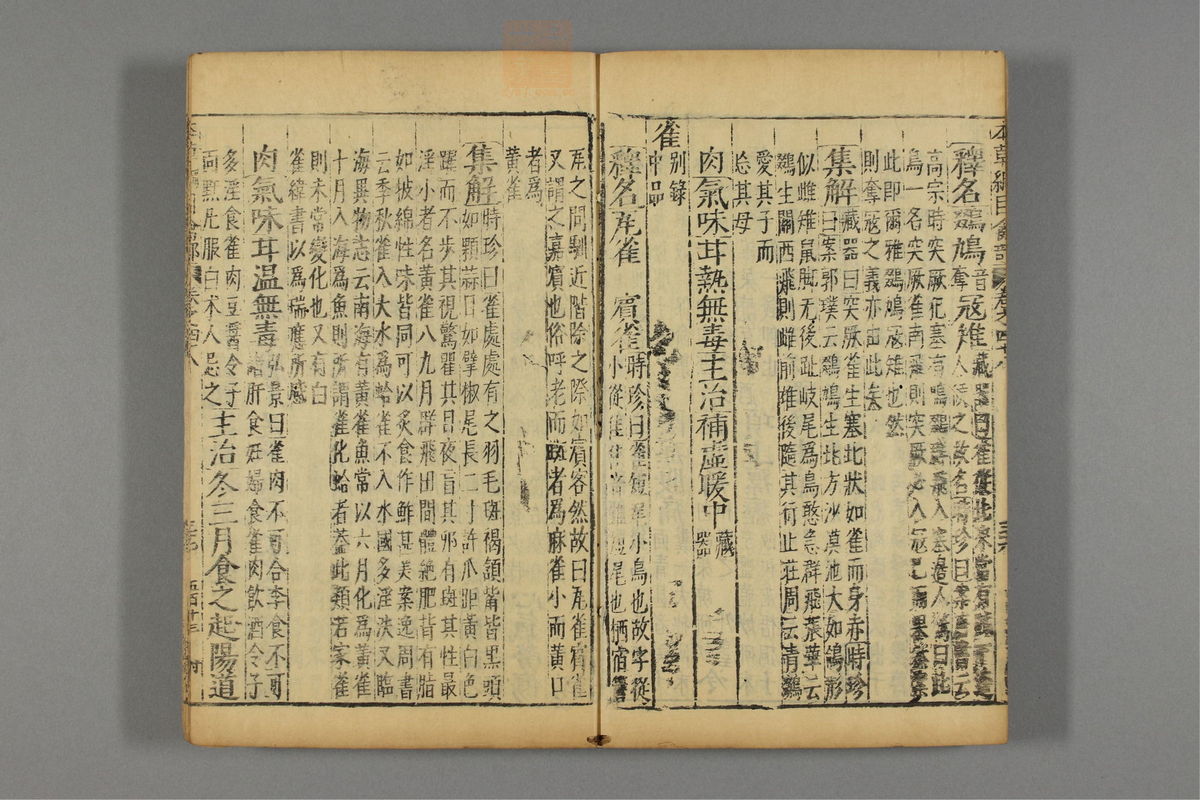 釋名鵽鳩音奪寇雉藏器曰雀
高宗時突厥犯塞有鳴鵽羣飛入塞邊人
鳥一名突厥雀南飛則突厥必入寇已
此即爾雅鵽鳩寇雉也然
則奪寇之義亦由此矣
集解藏器曰突厥雀生塞北狀如雀而身赤時珍
曰案郭璞云鵽鳩生北方沙漠地大如鴿形
似雌雉鼠脚无後趾岐尾爲鳥憨急群飛張華云
鵽生關西飛則雌前雄後隨其行止莊周云青鵽
愛其子而
忘其母
肉氣味甘熱無毒主治補虛暖中藏器
雀別錄中品
釋名瓦雀 賓雀時珍曰雀短尾小鳥也故字從
小從隹隹音錐短尾也栖宿簷
瓦之間馴近階除之際如賓客然故曰瓦雀賓雀
又謂之嘉賓也俗呼老而斑者爲麻雀小而黃口
者爲
黃雀
集解時珍曰雀處處有之羽毛斑褐頷觜皆黑頭
如顆蒜目如擘椒尾長二寸許爪距黃白色
躍而不步其視驚瞿其目夜盲其卵有斑其性最
淫小者名黃雀八九月群飛田間體絶肥背有脂
如披綿性味皆同可以炙食作鮓甚美案逸周書
云季秋雀入大水爲蛤雀不入水國多淫泆又臨
海異物志云南海有黃雀魚常以六月化爲黃雀
十月入海爲魚則所謂雀化蛤者蓋此類若家雀
則未常變化也又有白
雀緯書以爲瑞應所感
肉氣味甘温無毒弘景曰雀肉不可合李食不可
諸肝食妊婦食雀肉飲酒令子
多淫食雀肉豆醬令子
面䵟凡服白朮人忌之主治冬三月食之起陽道